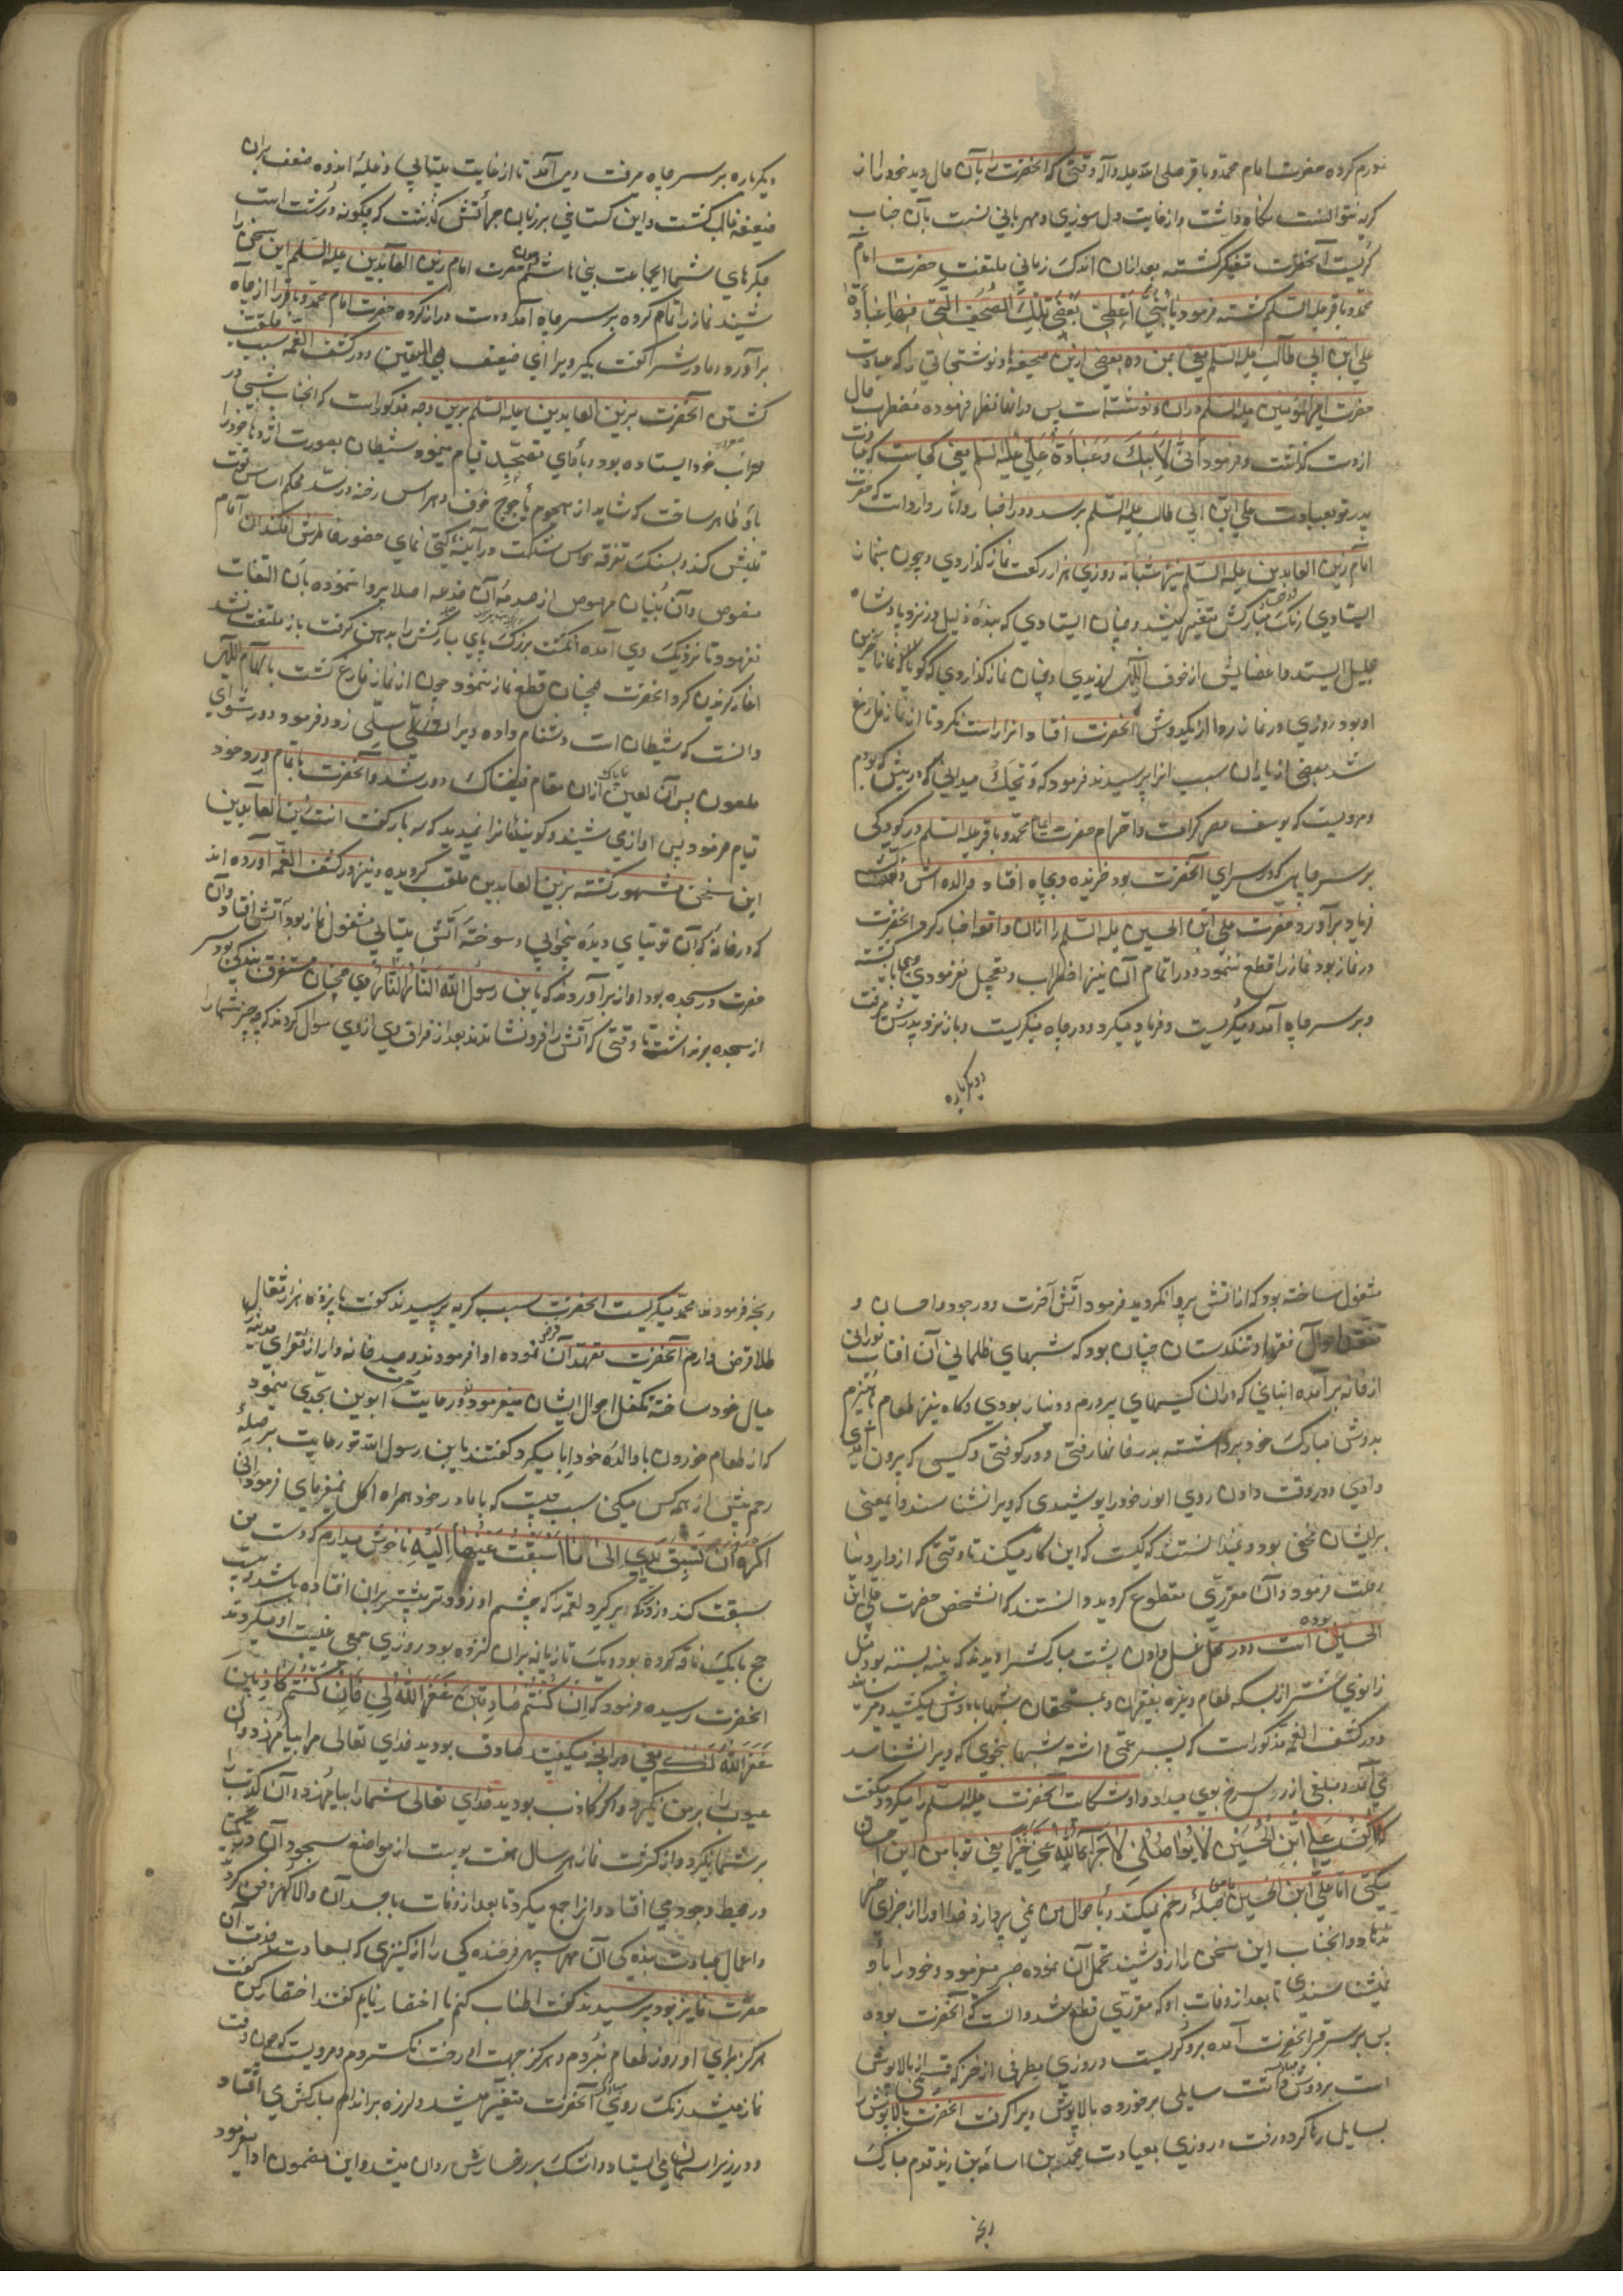 تورم کرده حضرت امام محمد باقر صلی الله علیه وآله وقتی که آنحضرت را بآن حال دید خود را از
گریه نتوانست نگاه داشت واز غایت دل سوزی ومهربانی نسبت بآن جناب
گریست آنحضرت تفکر گشته بعد ازان اندک زمانی ملتفت حضرت امام
محمد باقر علیه السلم گشته فرمود یا بُنَیَّ أَعطِنی بَعضَ تِلکَ الصُّحُفِ الَّتی فیها عِبَادَةُ
علی ابن ابی طالب علیه السلم یعنی بمن ده بعضی ازین صحیفها ونوشتجاتی را که عبادت
حضرت امیر المؤمنین علیه السلم دران نوشته است پس درانها نظر فرموده مضطرب حال
از دست گذاشت وفرمود أَنّی لِأَبیکَ وَعَبَادَةُ عَلِیٍّ علیه السلم یعنی کجاست که عبادت
پدر تو بعبادت علی ابن ابی طالب علیه السلم برسد ودر اخبار وآثار وارد است که حضرت
امام زین العابدین علیه السلم نیز شبانه روزی هزار رکعت نماز گذاردی وچون بنماز
ایستادی رنگ رخسار مبارکش متغیر میشد ومیان ایستادی که بندهٔ ذلیل در نزد پادشاه
جلیل ایستد واعضایش از خوف الهی لرزیدی وچنان نماز گذاردی که گویا نماز آخرین
او بود روزی در نماز ردا از یکدوش آنحضرت افتاد وانرا راست نکرد تا از نماز فارغ
شد بعضی از یاران سبب انرا پرسیدند فرمود که وَیحَکَ میدانی که در پیش که بودم
ومرویست که یوسف مصر کرامت واحترام حضرت امام محمد باقر علیه السلم در کودکی
بر سر چاهی که در سرای آنحضرت بود خزیده وبچاه افتاد والده اش
فریاد برآورد حضرت علی ابن الحسین علیه السلم را ازان واقعه اخبار کرد وآنحضرت
در نماز بود نماز را قطع ننمود ودر اتمام آن نیز اضطراب وتعجیل نفرمودی
وبر سر چاه آمد ومیگریست وفریاد میکرد ودر چاه مینگریست وباز نزد پدرش میرفت
دیگرباره
دیگرباره بر سر چاه میرفت ومی آمد تا از غایت بیتابی وغلبهٔ اندوه ضعف بران
ضعیفه غالب گشت واین گستاخی بر زبان جرأتش گذشت که چگونه درشت است
جگرهای شما ایجماعت بنی هاشم چون حضرت امام زین العابدین علیه السلم این سخن را
شنید نماز را تمام کرده بر سر چاه آمد ودست دراز کرده حضرت امام محمد باقر را از چاه
برآورد ومادرش را گفت بگیر ویرا ای ضعیف الیقین ودر کشف الغمه سبب ملقب
گشتن آنحضرت بزین العابدین علیه السلم برین وجه مذکور است که آنجناب شبی در
محراب خود ایستاده بود وبادای تهجد قیام مینمود شیطان بصورت اژدها خود را
باو ظاهر ساخت که شاید از هجوم یأجوج خوف وهراس رخنه در سد محکم اساس قوت
قلبش کند وبسنک تفرقه حواس شکست در آیینهٔ گیتی نمای حضور خاطرش افکند آن امام
منصوص وآن بُنیان مرصوص از صدمهٔ آن خدعه اصلا پروا ننموده بآن التفات
نفرمود تا نزدیک وی آمده انگشت بزرگ پای مبارکش را بدهن گرفت باز ملتفت نشد
آغاز گزیدن کرد وآنحضرت همچنان قطع نماز ننمود چون از نماز فارغ گشت بالهام الهی
دانست که شیطان است دشنام داده ویرا سیلی زد وفرمود دور شو ای
ملعون پس آن لعین ناپاک ازان مقام فیضناک دور شد وآنحضرت باتمام ورد خود
قیام فرمود پس آوازی شنید وگویندهٔ انرا ندید که سه بار گفت انت زین العابدین
این سخن مشهور گشته بزین العابدین ملقب گردید ونیز در کشف الغمه آورده اند
که در خانه که آن توتیای دیدهٔ بیخوابی وسوختهٔ آتش بیتابی مشغول نماز بود آتش افتاد وآن
حضرت در سجده بود آواز برآوردند که یابن رسول الله النّار النّار وی همچنان مستغرق بندگی بود وسر
از سجده برنداشت تا وقتی که آتش را فرونشاندند بعد از فراق وی از وی سوال کردند که چه چیز شما را
مشغول ساخته بود که از آتش پروا نکردید فرمود آتش آخرت ودر جود واحسان و
تفقد احوال فقرا وتنگدستان چنان بود که شبهای ظلمانی آن آفتاب نورانی
از خانه برآمده انبانی که دران کیسهای پر درم ودینار بودی وگاه نیز طعام وهیزم
بدوش مبارک خود برداشته بدر خانها رفتی ودر کوفتی وکسی که بیرون آمدی
دادی ودر وقت دادن روی انور خود را پوشیدی که ویرا نشناسند واینمعنی
برایشان مخفی بود ونمیدانستند که کیست که این کار میکند تا وقتی که از دار دنیا
رحلت فرمود وآن مقرری مقطوع گردید دانستند که آنشخص حضرت علی ابن
الحسین بوده است ودر محل غسل دادن پشت مبارکش را دیدند که پینه بسته بود مثل
زانوی شتر از بسکه طعام وغیره بفقیران ومستحقان شبها بدوش میکشید ومیرسانید
ودر کشف الغمه مذکور است که پسر عمی داشته شبها بنحوی که ویرا نشناسد
می آمد ومبلغی از زر سرخ بوی میداد واو شکایت آنحضرت علیه السلم را میکرد ومیگفت
لکن عَلیَّ ابنَ الحُسَینِ لَا یُوَاصِلُنی لَا جَزَاهُ اللّٰهُ عَنّی خَیراً یعنی تو با من این احسان
میکنی اما علی ابن الحسین با من صلهٔ رحم نمیکند وبأحوال من نمی پردازد خدا او را از جزای خیر
ندهاد وآنجناب این سخن را ازو شنید تحمل آن نموده صبر میفرمود وخود را باو
نمیشناسند تا بعد از وفات او که مقرری قطع شد دانست که آنحضرت بوده
پس بر سر قبر آنحضرت آمده بروگریست وروزی مطرفی از خز که قسمی از بالاپوش
است بردوش داشت سایلی برخورده بالاپوش ویرا گرفت آنحضرت بالاپوش را
بسایل رها کرد ورفت وروزی بعیادت محمد بن اسامه بن زید قدم مبارک
رنجه
رنجه فرمودند محمد میگریست آنحضرت سبب گریه پرسیدند گفت پانزده هزار مثقال
طلا قرض دارم آنحضرت تعهد آن قرض نموده ادا فرمودند وصد خانه وار از فقرای مدینه را
عیال خود ساخته تکفل احوال ایشان میفرمود ودر رعایت حرمت ابوین بحدی مینمود
که از طعام خوردن با والدهٔ خود ابا میکرد گفتند یابن رسول الله تو رعایت بر صلهٔ
رحم بیش از همه کس میکنی سبب چیست که با مادر خود همراه اکل نمیفرمای فرمود انی
اکره ان تسبق یدی الی ما سبقت عینها الیه ناخوش میدارم که دست من
سبقت کند وزودتر برگیرد لقمه را که چشم او زودتر پیشتر بران افتاده باشد وبیست
حج با یک ناقه کرده بود ویک تازیانه بران نزده بود روزی جمعی غیبت او میکردند
آنحضرت رسیده فرمود که اِن کُنتُم صَادِقِینَ غَفَرَ اللّٰهُ لِی فَاِن کُنتُم کَاذِبِینَ
غَفَرَ اللّٰهُ لَکُم یعنی در آنچه میگفتید صادق بودید خدای تعالی مرا بیامرزد وآن
عیوب را بر من نگیرد واگر کاذب بودید خدای تعالی شما را بیامرزد وآن کذب
بر شما نگیرد واز کثرت نماز هر سال هفت پوست از مواضع سجود آن
در محیط وجود می افتاد وانرا جمع میکرد تا بعد از وفات با جسد آن والا گهر دفن کردند
واعمال عبادت بندگی آن مهر سپهر فرخندگی را از کنیزی که بسعادت خدمت آن
حضرت فایز بود پرسیدند گفت اطناب کنم یا اختصار نمایم گفتند اختصار کن گفت
هرگز برای او روز طعام نبردم وهرگز جهت او رخت نگستردم ومرویست که چون وقت
نماز میشد رنگ روی مبارک آنحضرت متغیر میشد ولرزه بر اندام مبارکش می افتاد
ودر زیر آسمان می ایستاد واشک بر رخسارش روان میشد واین مضمون ادا میفرمود